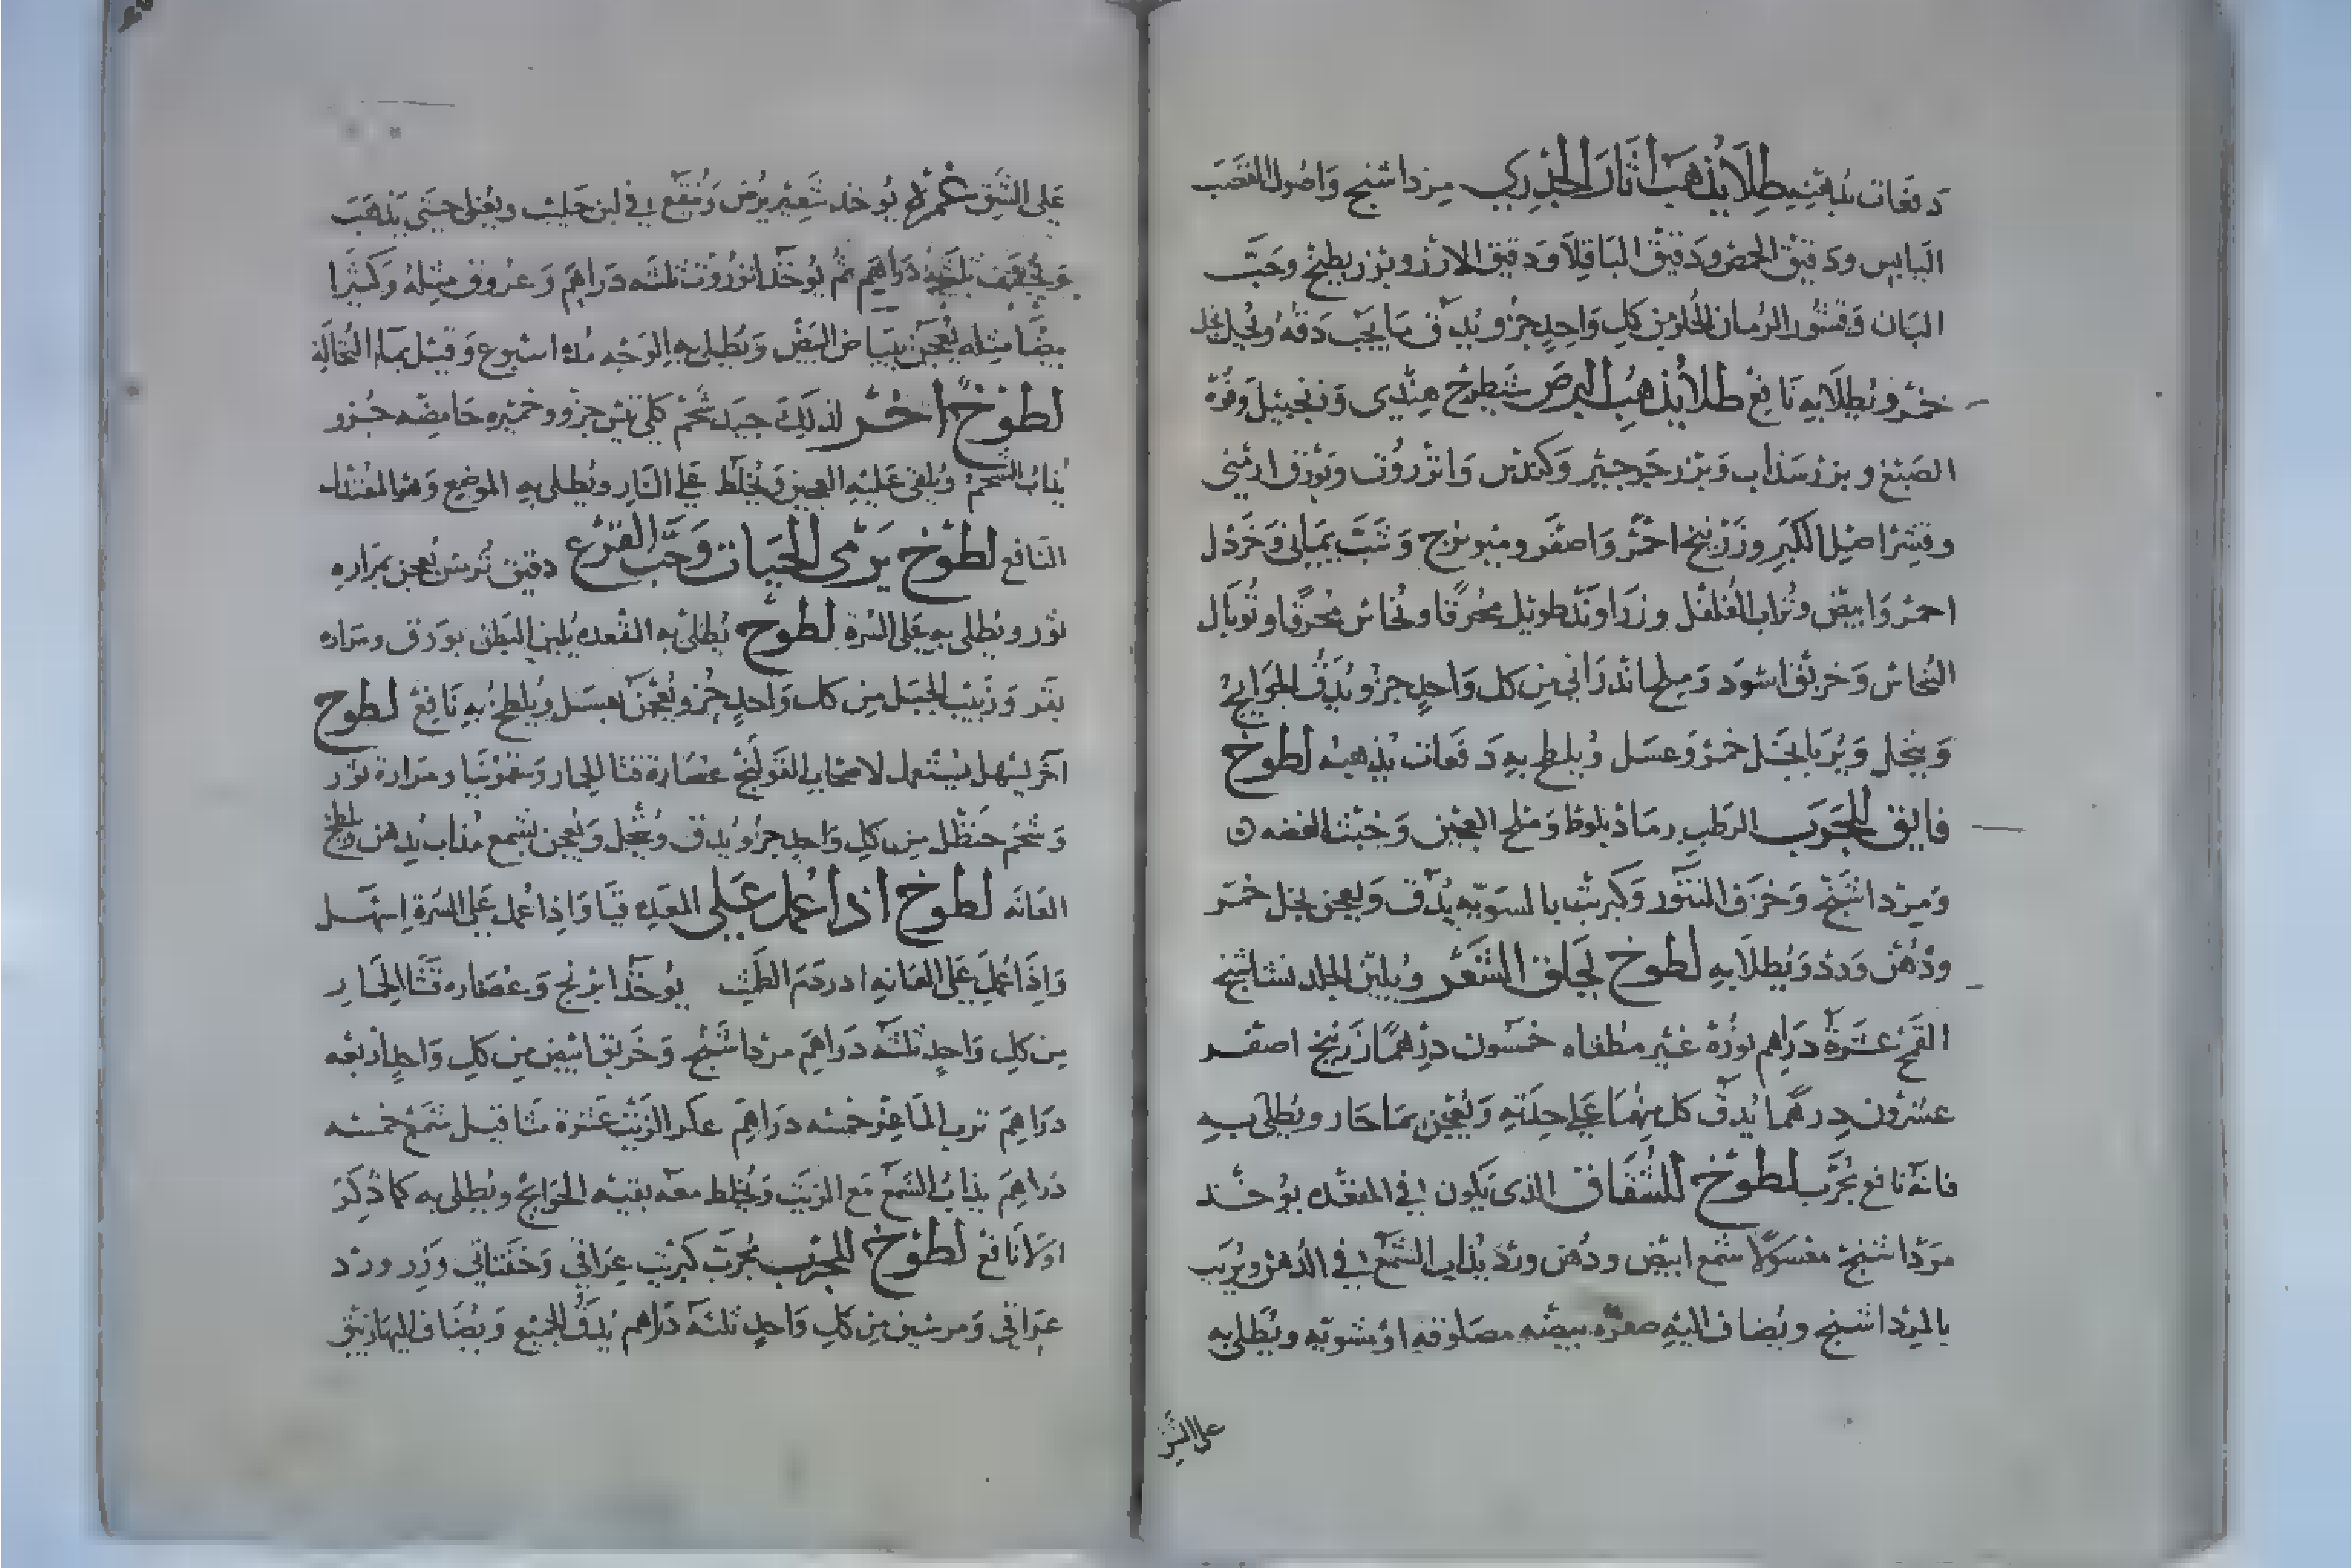 دفعات يذهبه طلا يذهب اثار الجدري مرداسنج واصول القصب
اليابس ودقيق الحمص ودقيق الباقلا ودقيق الارز وبزر بطيخ وحب
البان وقشور الرمان الحلو من كل واحد جزو يدق ما يجب دقه ونخل بخل
خمر ويطلا به نافع طلا يذهب البرص شيطرج هندي وزنجبيل وفوة
الصبغ وبزر سذاب وبزر جرجير وكندس وانزروت وبورق ارمني
وقشر اصل الكبر وزرنيخ احمر واصفر وميويزج وشب يماني وخردل
احمر وابيض وتراب الفلفل وزراوند طويل محرقا ونحاس محرقا وتوبال
النحاس وخربق اسود وملح اندراني من كل واحد جزو يدق الحوايج
وينخل ويربا بخل خمر وعسل ويلطخ به دفعات يذهبه لطوخ
فايق للجرب الرطب رماد بلوط وملح العجين وخبث الفضه
ومرداسنج وخزف التنور وكبريت بالسويه يدق ويعجن بخل خمر
ودهن ورد ويطلا به لطوخ لحلق الشعر ويلين الجلد نشاستج
القمح عشرة دراهم نورة غير مطفاه خمسون درهما زرنيخ اصفر
عشرون درهما يدق كل منهما على حدته ويعجن بما حار ويطلى به
فانه نافع مجرب لطوخ للشقاق الذي يكون في المقعده يوخذ
مرداسنج مغسولا شمع ابيض ودهن ورد يذاب الشمع في الدهن ويربب
بالمرداسنج ويضاف اليه صفرة بيضه مصلوقه او مشويه ويطلى به
على الشق
على الشق غمرة يوخذ شعير يرض وينقع في لبن حليب ويغلى حتى يذهب
ويجفف دراهم ثم يوخذ انزروت ثلثه دراهم وعروق مثله وكثيرا
بيضا مثله يعجن ببياض البيض ويطلى به الوجه مدة اسبوع وقبل بما النخالة
لطوخ اخر لذلك جيد شحم كلى تيس جزو وخميره حامضه جزو
يذاب الشحم ويلقى عليه العجين ويخلط على النار ويطلى به الموضع وهو المعتدل
النافع لطوخ يرمى الحيات وحب القرع دقيق ترمس يعجن بمراره
ثور ويطلى به على السرة لطوخ يطلى به المقعده يلين البطن بورق ومراره
بقر وزبيب الجبل من كل واحد جزو يعجن بعسل ويلطخ به نافع لطوخ
آخر يسهل يستعمل لاصحاب القولنج عصارة قثا الحمار وسقمونيا ومرارة ثور
وشحم حنظل من كل واحد جزو يدق وينخل ويعجن بشمع مذاب بدهن ويلطخ
العانه لطوخ اذا عمل على المعده قيا واذا عمل على السرة اسهل
واذا عمل على العانه ادر دم الطمث يوخذ ابرنج وعصاره قثا الحمار
من كل واحد ثلثه دراهم مرداسنج وخربق ابيض من كل واحد اربعه
دراهم ترب الماعز خمسه دراهم عكر الزيت عشرة مثاقيل شمع خمسه
دراهم يذاب الشمع مع الزيت ويخلط معه بقيه الحوايج ويطلى به كما ذكر
اولا نافع لطوخ للجرب مجرب كبريت عراقي وزر ورد
عراقي ومرسين من كل واحد ثلثه دراهم يدق الجميع ويضاف اليها زيبق